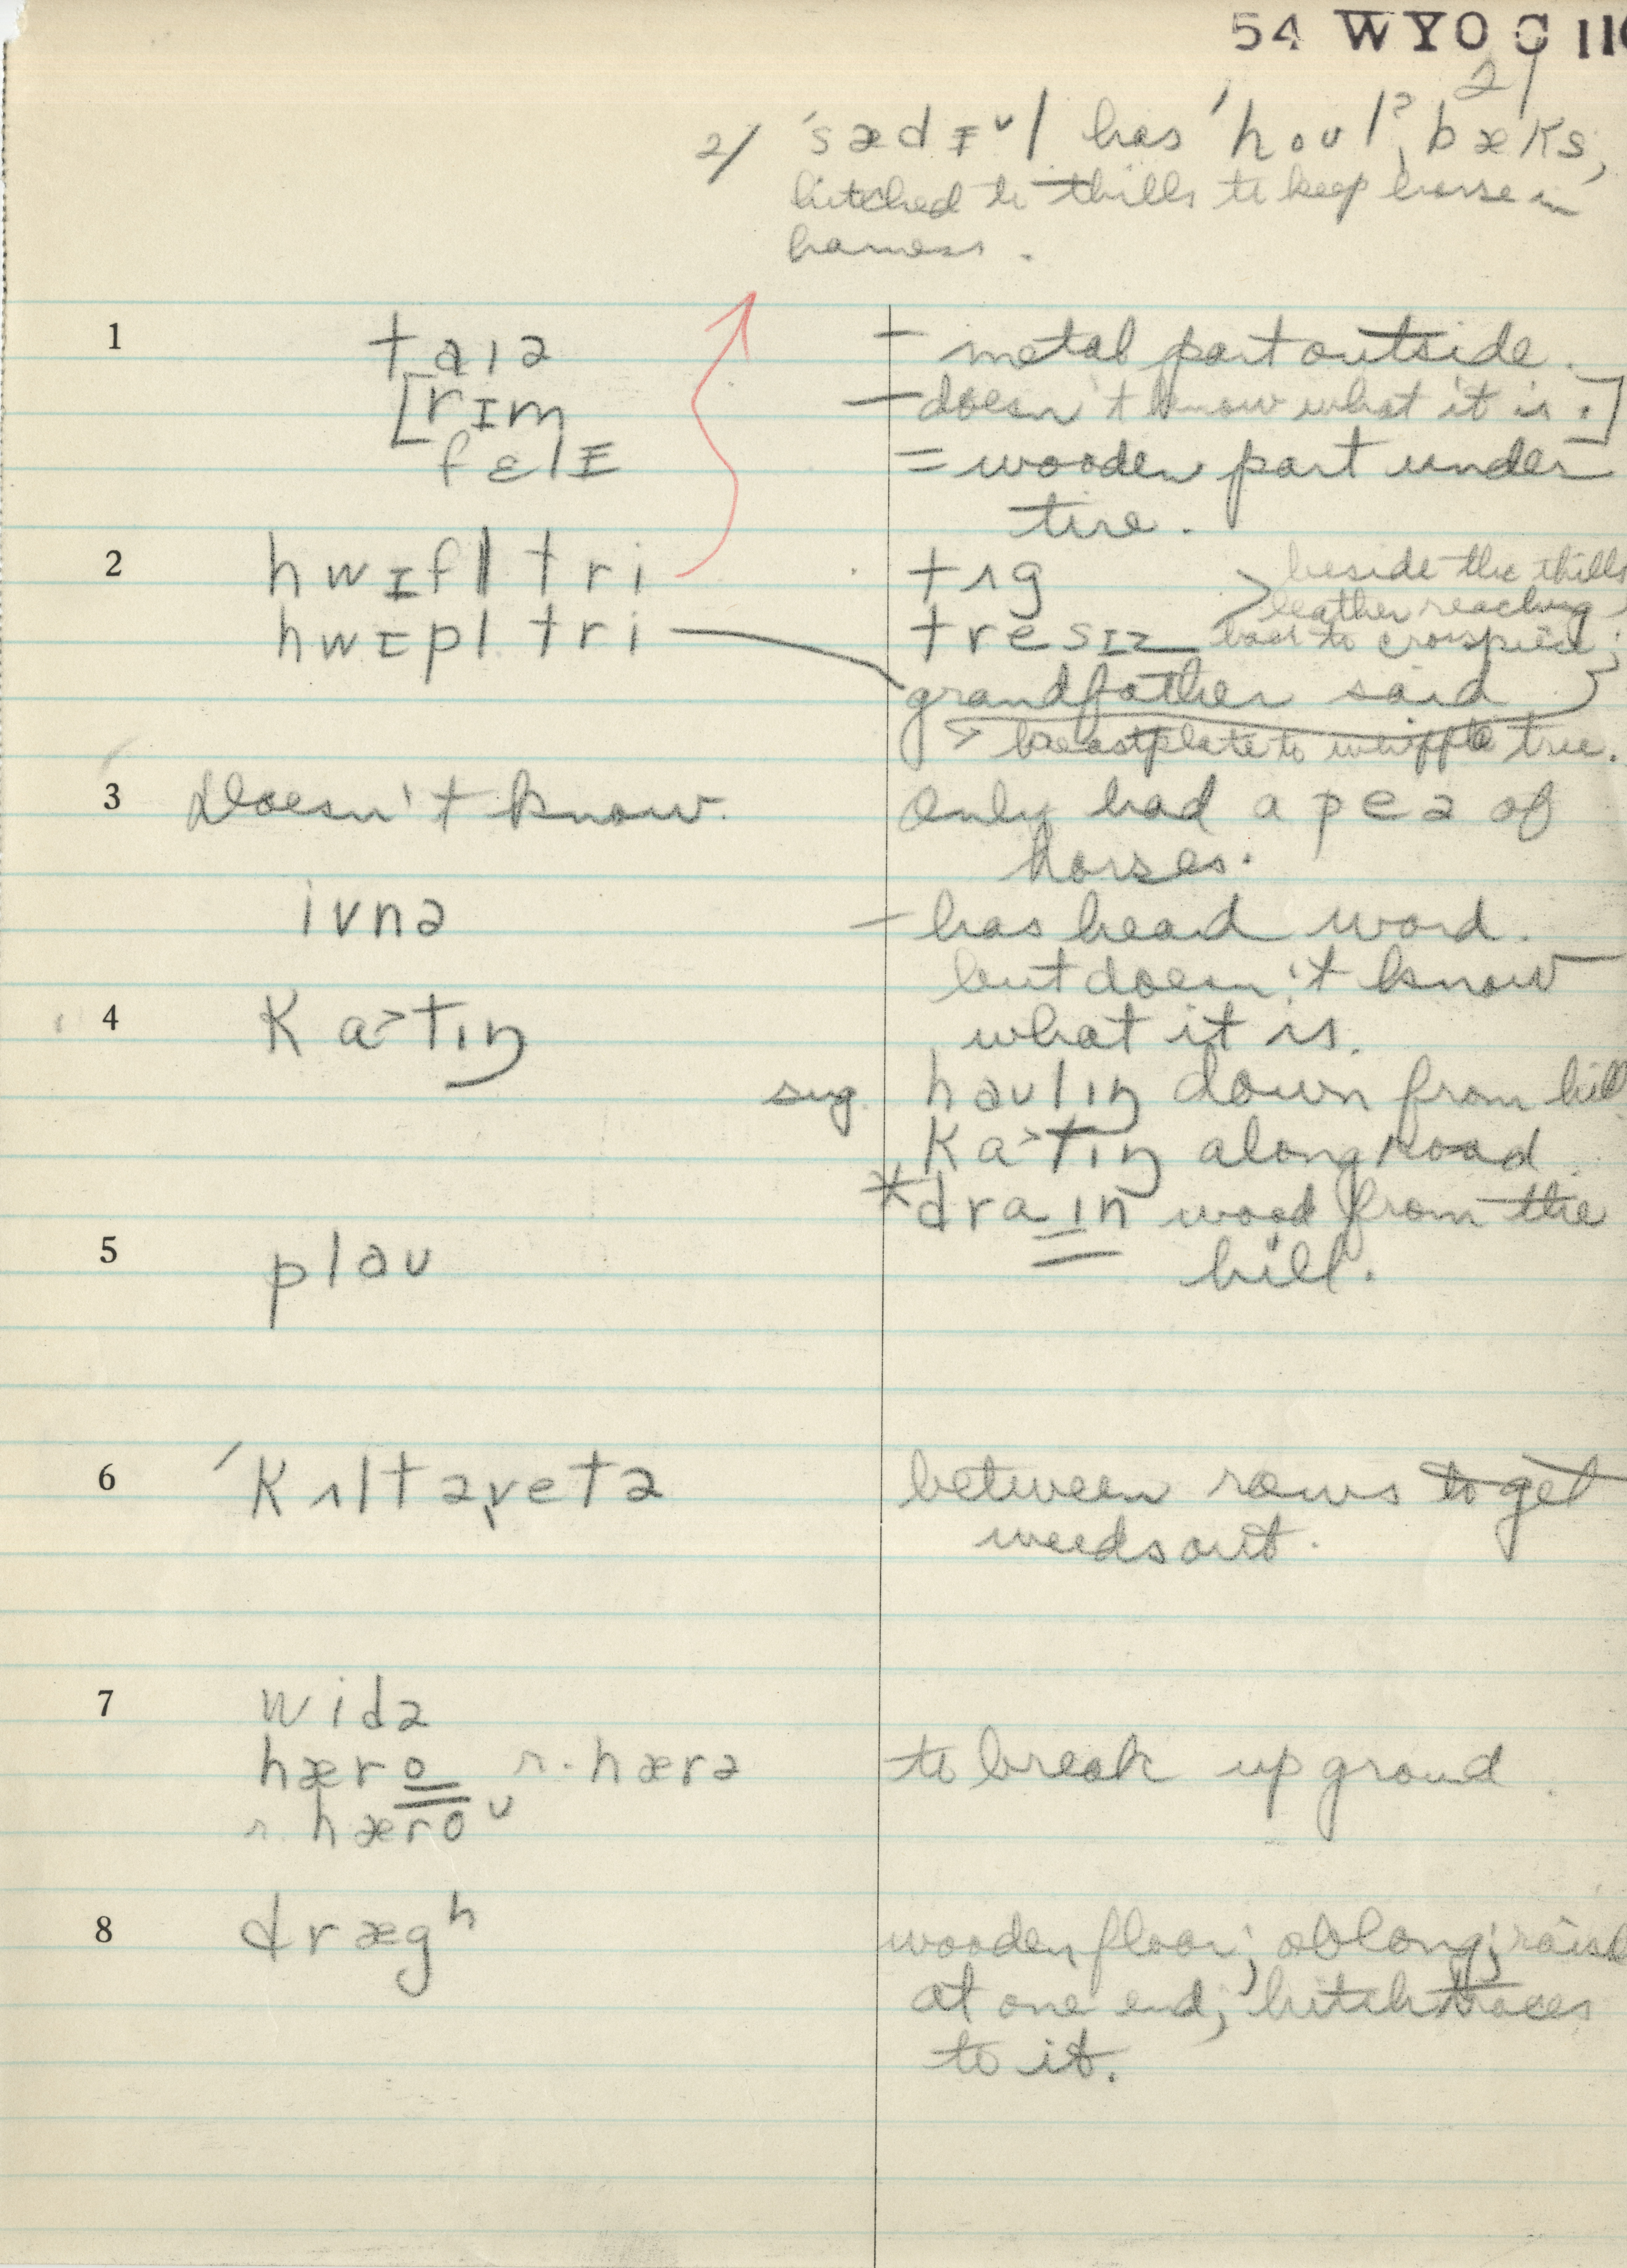 54 WYO C 110
21
2/ ˈsædᵻᵛl has ˈhoʊlˀˌbæks,
hitched to thills to keep horse in
harness.
1 taɪə – metal part outside.
[rɪm – doesn't know what it is.]
fɛlᵻ = wooden part under
tire.
2 hwɪfl tri tʌg > beside the thills
leather reaching
hwɪpl tri tresɪz back to crosspiece;
grandfather said
> breastplate to whipple tree.
3 Doesn't know. Only had a peə of
horses.
ivnə – has heard word.
but doesn't know
4 ka>tɪŋ what it is.
sug. haulɪŋ down from hill
ka>tɪŋ along road.
*draɪn wood from the
5 plaʊ hill.
6 ˈkʌltəˌvetə between rows to get
weeds out.
7 widə
hæro r. hærə to break up ground.
r. hæroᵘ
8 drægʰ wooden floor; oblong; raised
at one end; hitch traces
to it.